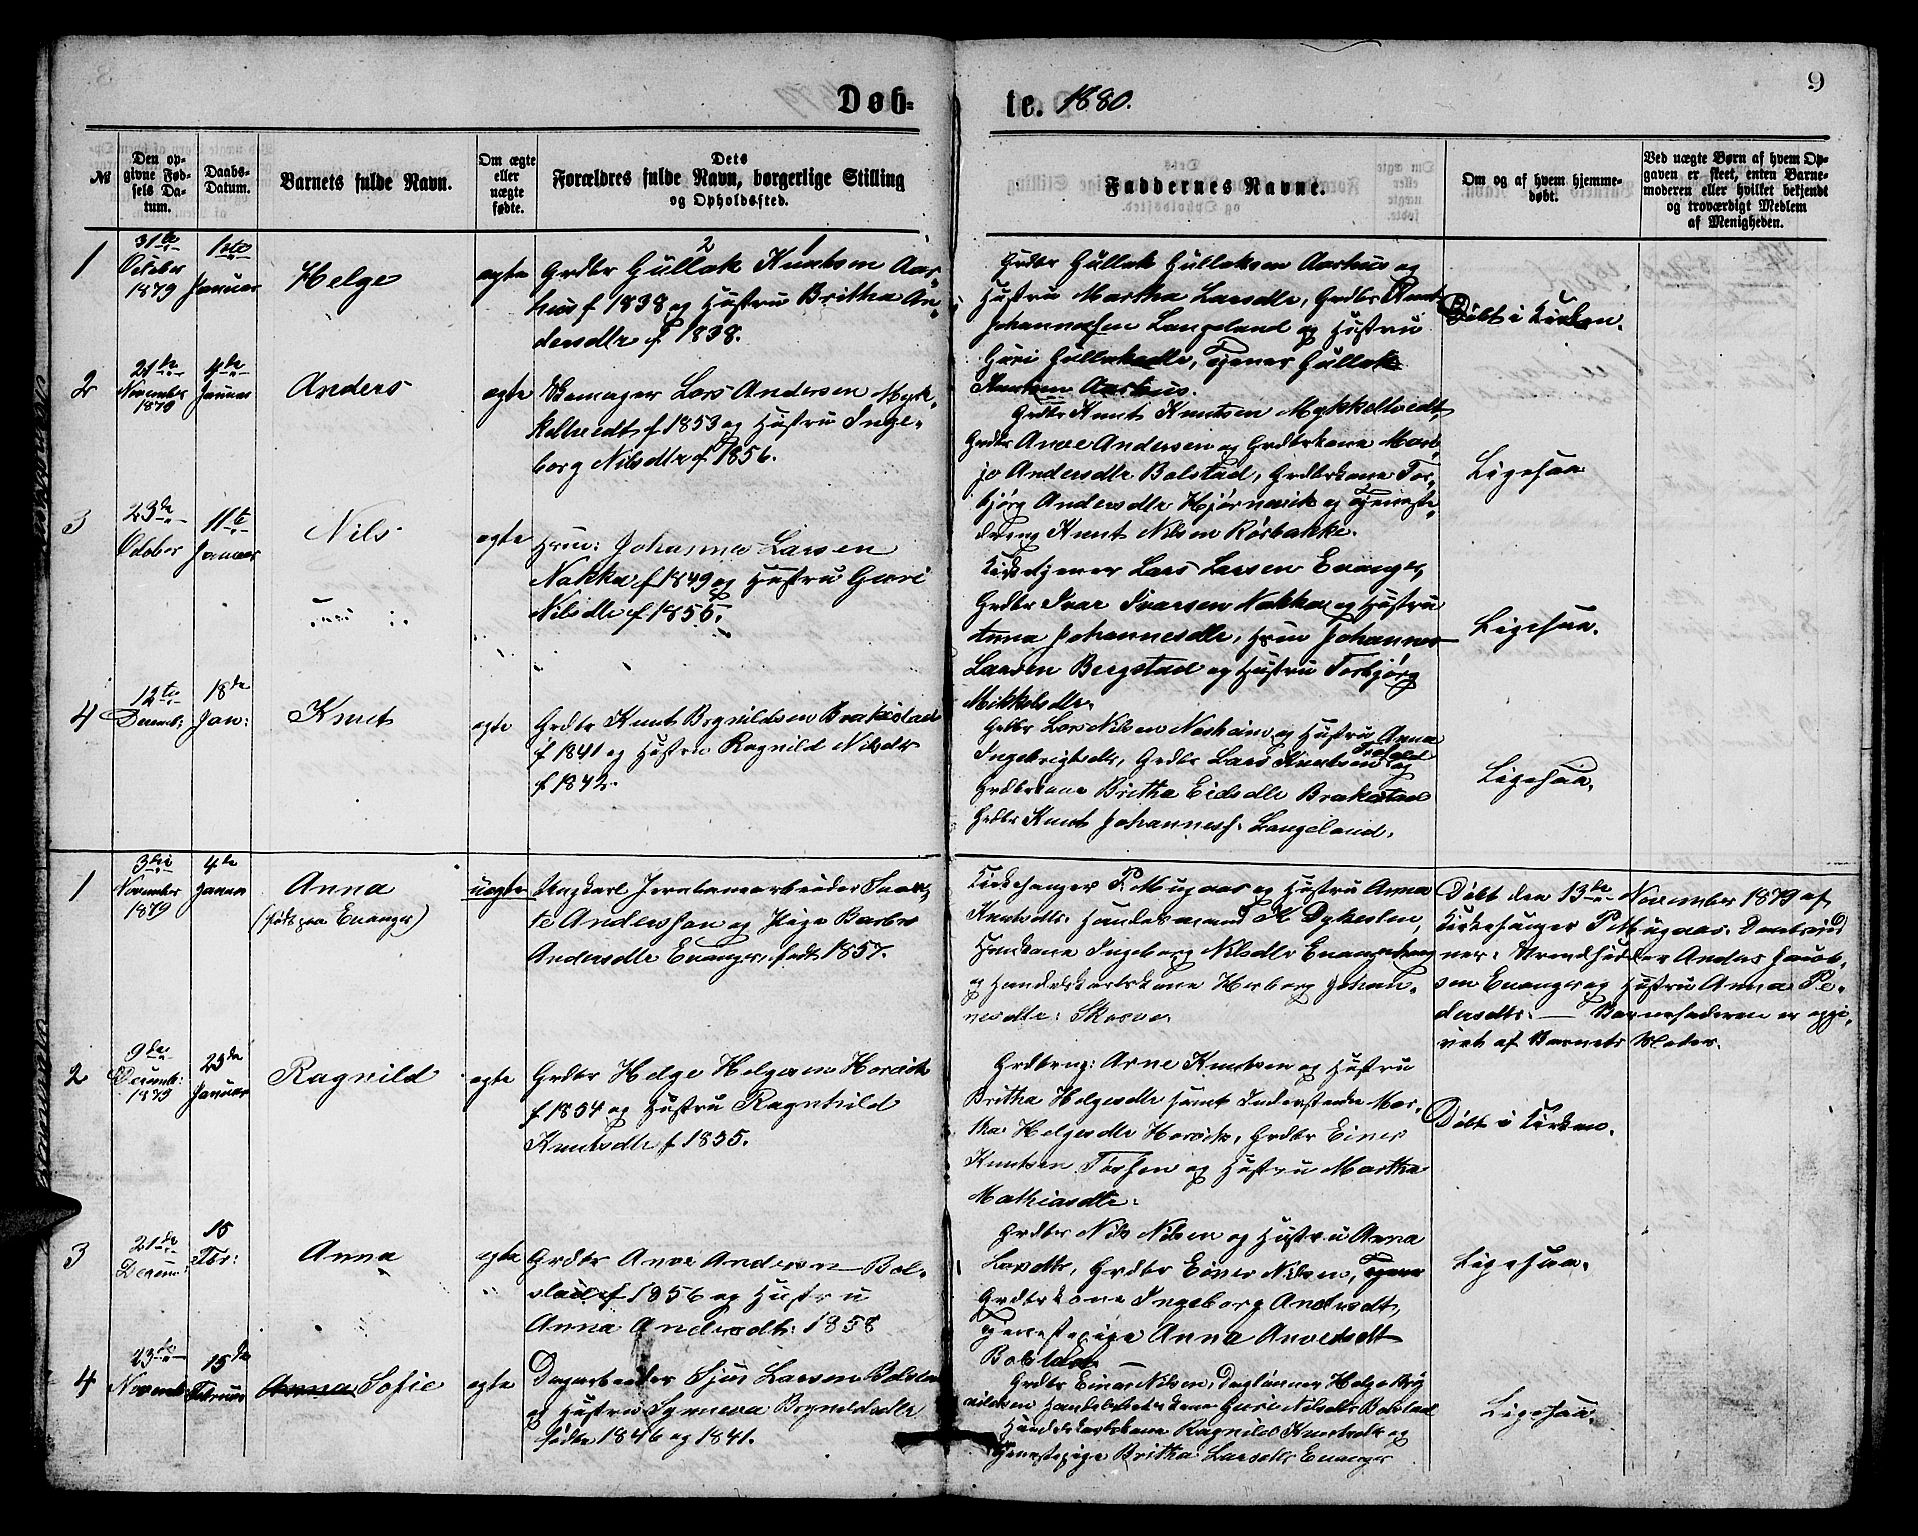 9
Døb-
te. 1880.
№
Den op-
givne Fød-
sels Da-
tum.
Daabs-
Datum.
Barnets fulde Navn.
Om ægte
eller
uægte
fødte.
Dets
Forældres fulde Navn, borgerlige Stilling
og Opholdssted.
Faddernes Navne.
Om og af hvem hjemme-
døbt.
Ved uægte Børn af hvem Op-
gaven er skeet, enten Barne-
moderen eller hvilket bekjendt
og troværdigt Medlem
af Menigheden.
1
31te
October
1879
1ste
Januar
Helge
egte
2 1
Grdbr Gullak Knutsen Aar-
hus f 1838 og Hustru Britha An-
dersdtr f 1838.
Grdbr Gullak Gullaksen Aarhus og
Hustru Martha Larsdtr, Grdbr Knut
Johannessen Langeland og Hustru
Guri Gullaksdtr, Tjener Gullak
Knutsen Aarhus.
Døbt i Kirken.
2
21de
November
1879
4de
Januar
Anders
egte
Lars Andersen Myk-
keltvedt f 1853 og Hustru Inge-
borg Nilsdtr f 1856.
Grdbr Knut Knutsen Mykkeltvedt,
Grdbr Anve Andersen og Grdbrkone Mar-
jo Andersdtr Bolstad, Grdbrkone Tor-
bjørg Andersdtr Hjørnevik og Tjeneste-
dreng Knut Nilsen Rørbakke.
Ligesaa
3
23de
October
11te
Januar
Nils
egte
Hmd: Johannes Larsen
Nakka f 1849 og Hustru Guri
Nilsdtr f 1855.
Kirketjener Lars Larsen Evanger,
Grdbr Ivar Ivarsen Nakka og Hustru
Anna Johannesdtr, Hmd Johannes
Larsen Bergstad og Hustru Torbjørg
Mikkelsdtr.
Ligesaa.
4
12te
Decemb:
18de
Jan:
Knut
egte
Grdbr Knut Brynildsen Brakestad
f 1841 og Hustru Ragnild Nilsdtr
f 1842.
Grdbr Lars Nilsen Nesheim og Hustru Anna
Ingebrigtsdtr, Grdbr Lars Knutsen og
Grdbrkone Britha Eidsdtr Brakestad
Grdbr Knut Johanness. Langeland.
Ligesaa.
1
3die
November
1879
4de
Januar
Anna
(født paa Evanger)
uegte
Ungkarl Jernbanearbeider Svan-
te Anderssan og Pige Barbro
Andersdtr Evanger, født 1857.
Kirkesanger P. Mugaas og Hustru Anna
Knutsdtr. Handelsmand K Dykesten,
Hmdkone Ingeborg Nilsdtr Evangerhaug
og Handelskarlskone Herborg Johan-
nesdtr. Skorve.
Døbt den 13de November 1879 af
Kirkesanger P. Mugaas. Daabsvid-
ner: Strandsidder Anders Jacob-
sen Evanger og Hustru Anna Pe-
dersdtr. — Barnefaderen er opgi-
vet af Barnets Moder.
2
9de
Decemb:
1879
23de
Januar
Ragnild
egte
Grdbr Helge Helgesen Horvik
f 1834 og Hustru Ragnhild
Knutsdtr f 1835.
Grdbrmg: Arne Knutsen og Hustru
Britha Helgesdtr samt Inderstinde Mar-
tha Helgesdtr Horvik, Grdbr Einer
Knutsen Tøssen og Hustru Martha
Mathiasdtr.
Døbt i Kirken.
3
21de
Decemb:
15
Febr:
Anna
egte
Grdbr Anve Andersen Bol-
stad f 1856 og Hustru
Anna Andersdtr: 1858
Grdbr Nils Nilsen og Hustru Anna
Larsdtr, Grdbr Einer Nilsen, Tjener
Grdbrkone Ingeborg Andersdt,
Tjenestepige Anna Anvesdt
Bolstad. —
Ligesaa.
4
23de
Novemb:
15de
Februar
Anna Sofie
egte
Dagarbeider Sjur Larsen Bolstad
og Hustru Synneva Brynildsdtr
fødte 1846 og 1841.
Grdbr Einar Nilsen, Daglønner Helge Bry-
nildsen Handelskarlskone Guri Nilsdtr Bolstad
Handelskarlskone Ragnild Knutsdtr og
Tjenestepige Britha Larsdtr Evanger
Ligesaa.